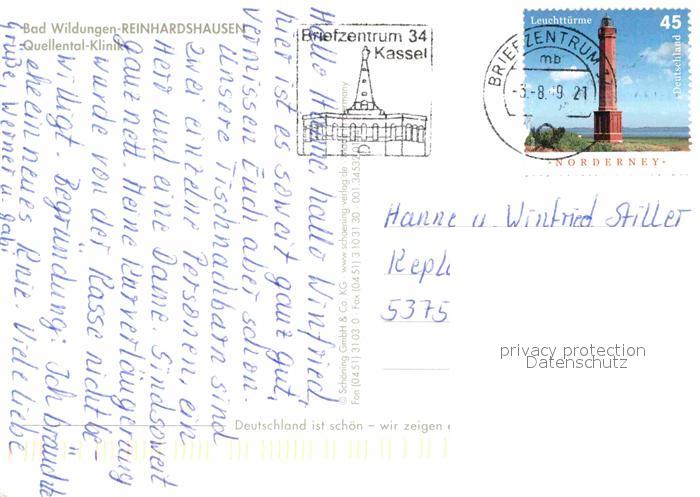 Bad Wildungen-REINHARDSHAUSEN
Quellental-Klinik
Briefzentrum 34
Kassel
BRIEFZENTRUM
mb
-3.-8.-9 21
Leuchttürme
45
Deutschland
NORDERNEY
Hallo Hanne, hallo Winfried
hier ist es soweit ganz gut,
vermissen Euch aber schon.
Unsere Tischnachbarn sind
zwei einzelne Personen, ein
Herr und eine Dame. Sind soweit
ganz nett. Meine Kurverlängerung
wurde von der Kasse nicht be-
willigt. Begründung: Ich bräuchte
ehe ein neues Knie. Viele liebe
Grüße, Werner u. Gabi
© Schöning GmbH & Co. KG www.schoening-verlag.de
Fon (04 51) 3 10 3 0 Fax (04 51) 3 10 31 30
Hanne u. Winfried Stiller
Kepl
5375
privacy protection
Datenschutz
Deutschland ist schön – wir zeigen e